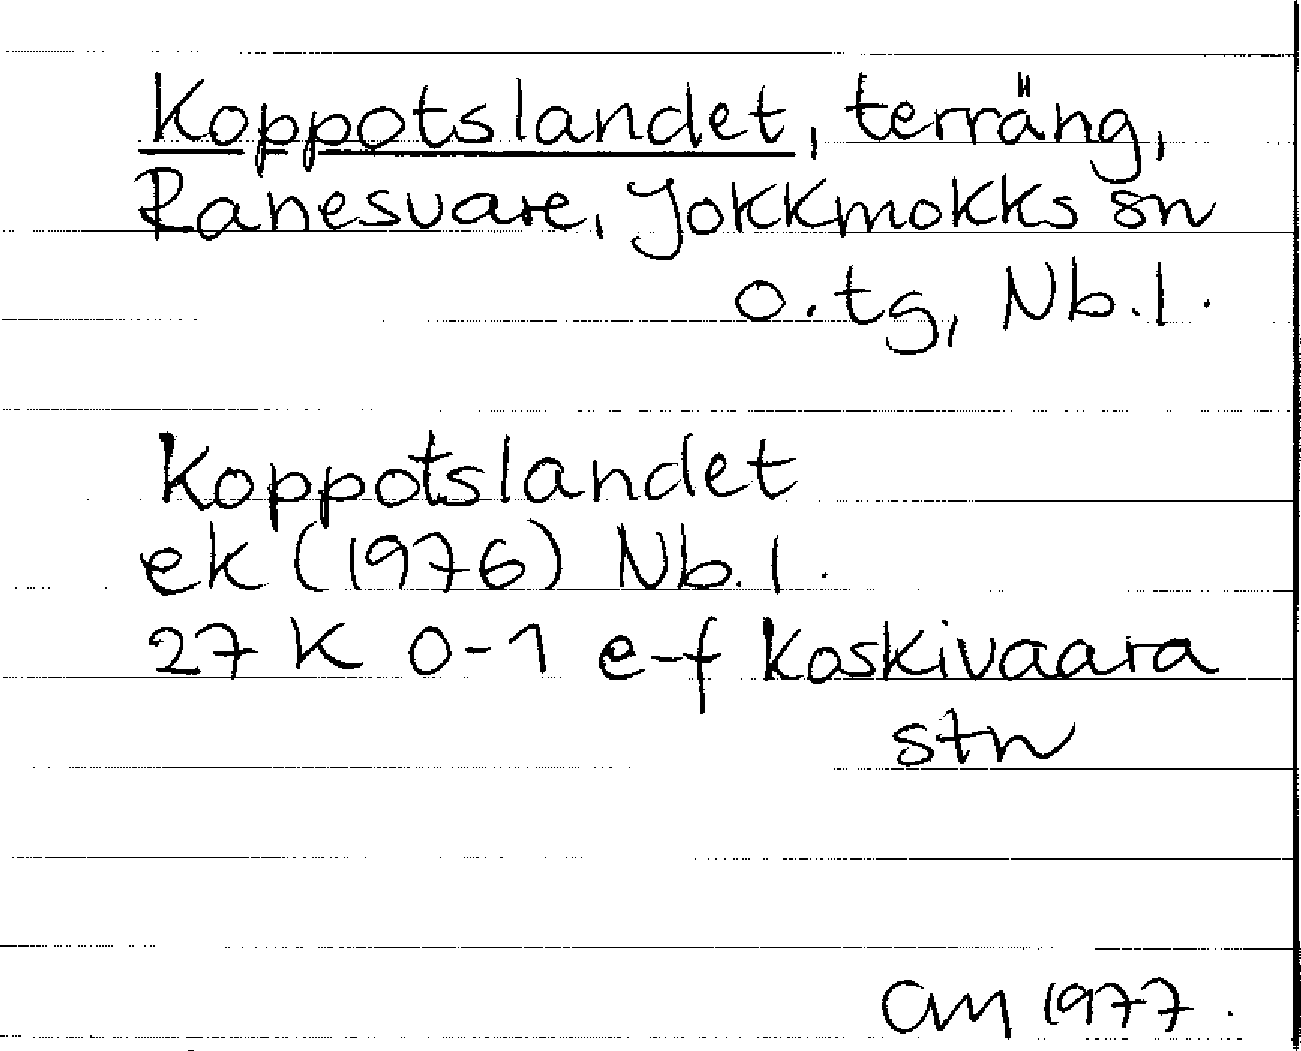 Koppotslandet, terräng,
Ranesvare, Jokkmokks sn
o. tg, Nb.l.
Koppotslandet
ek (1976) Nb.l.
27 K 0-1 e-f Koskivaara
stn
CM 1977.